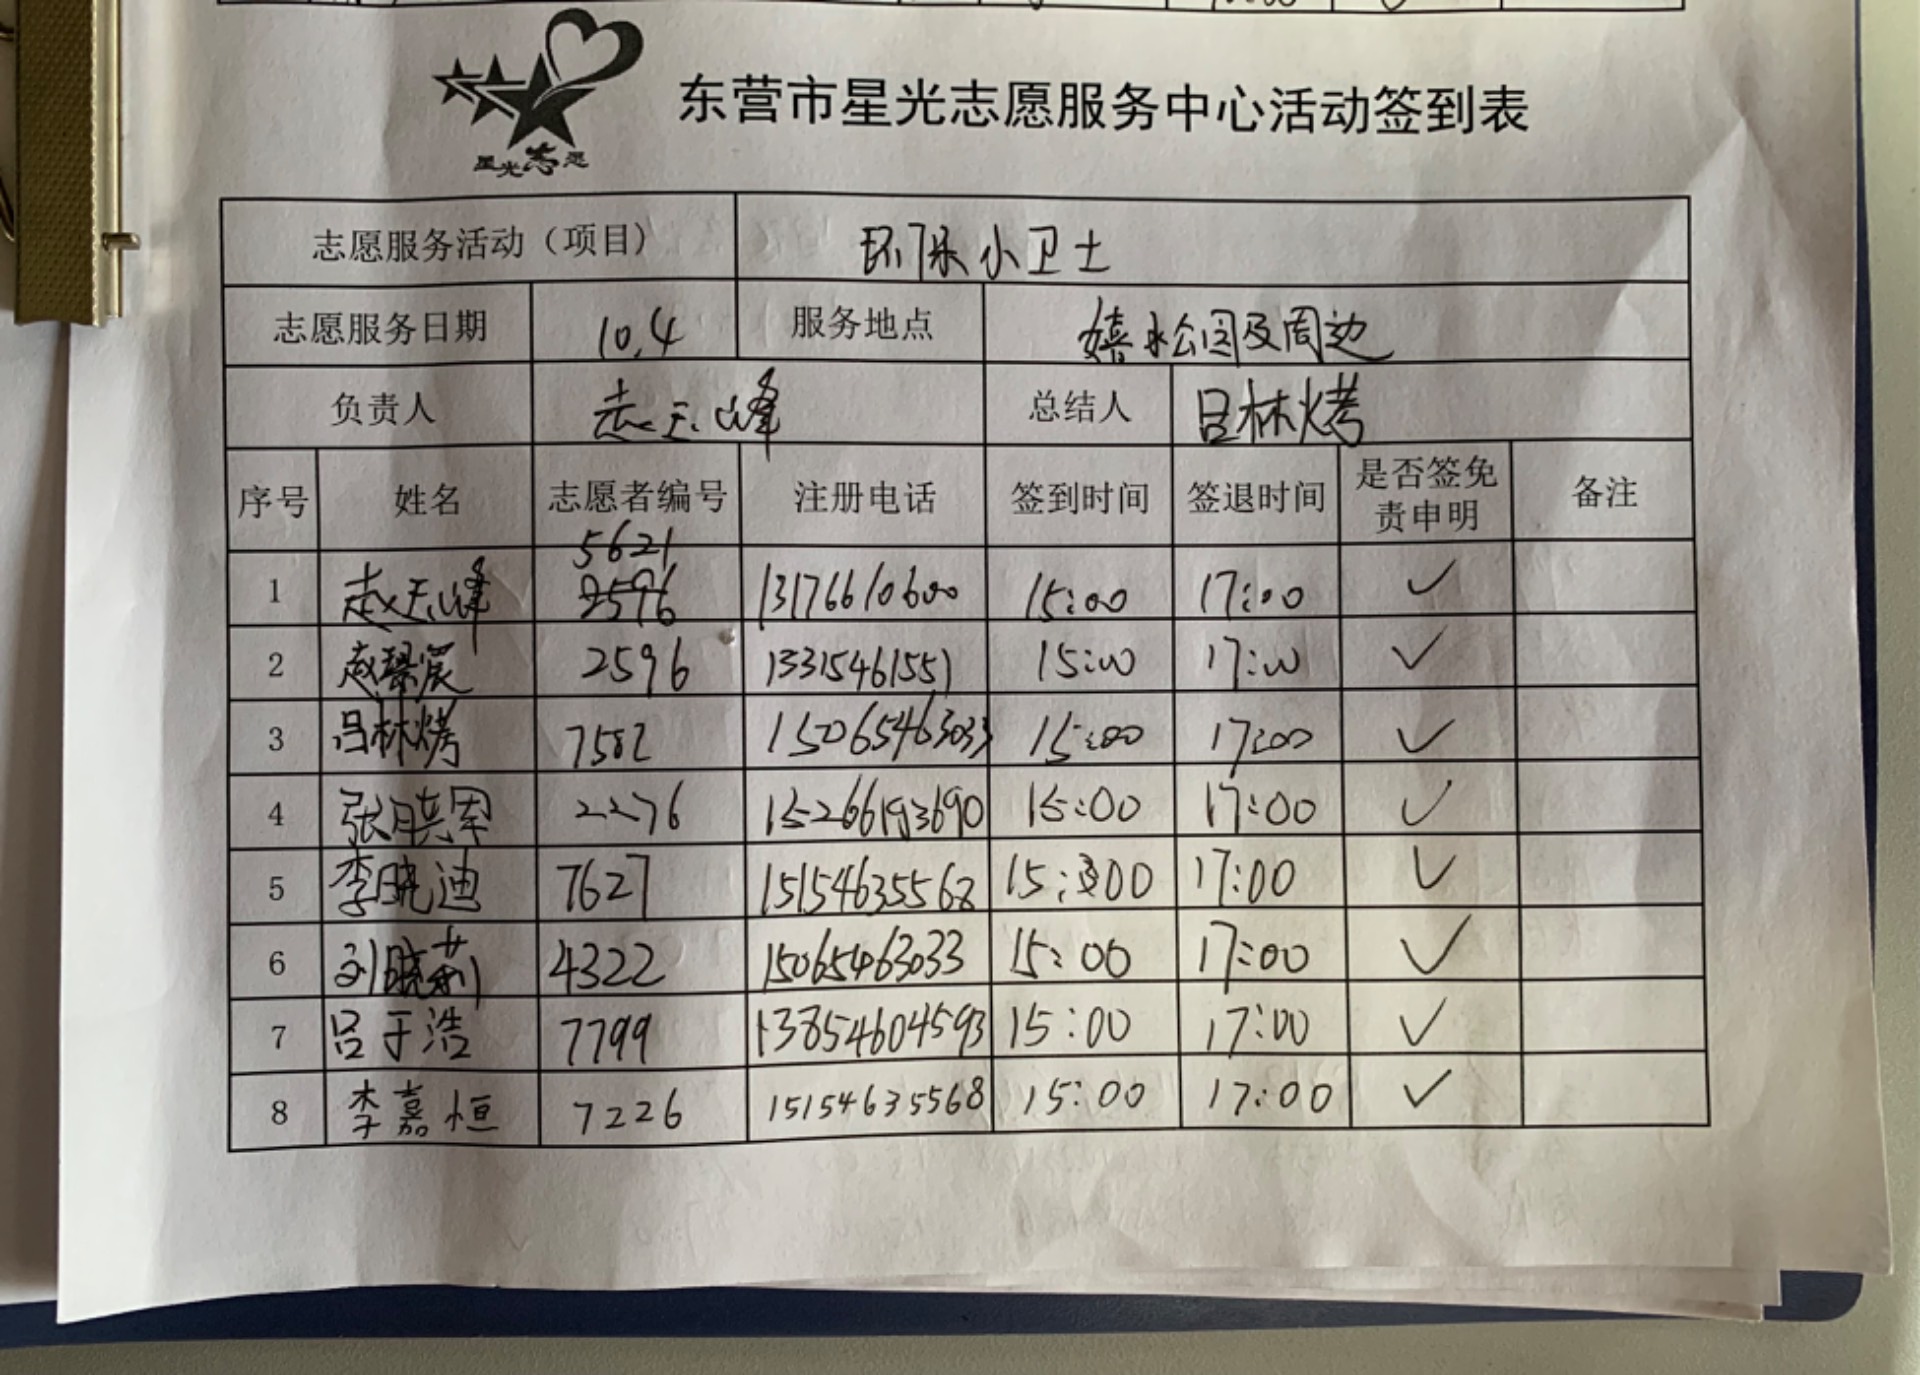 星光志愿
东营市星光志愿服务中心活动签到表
志愿服务活动（项目） 环保小卫士
志愿服务日期 10.4 服务地点 嬉水公园及周边
负责人 赵天峰 总结人 吕林烤
序号 姓名 志愿者编号 注册电话 签到时间 签退时间 是否签免责申明 备注
5621
1 赵天峰 2596 13176610600 15:00 17:00 ✓
2 赵 宸 2596 13315461551 15:00 17:00 ✓
3 吕林烤 7582 15065463033 15:00 17:00 ✓
4 张洪军 2276 15266193690 15:00 17:00 ✓
5 李晓迪 7627 15154635568 15:00 17:00 ✓
6 刘晓莉 4322 15065463033 15:00 17:00 ✓
7 吕于浩 7799 13854604593 15:00 17:00 ✓
8 李嘉恒 7226 15154635568 15:00 17:00 ✓